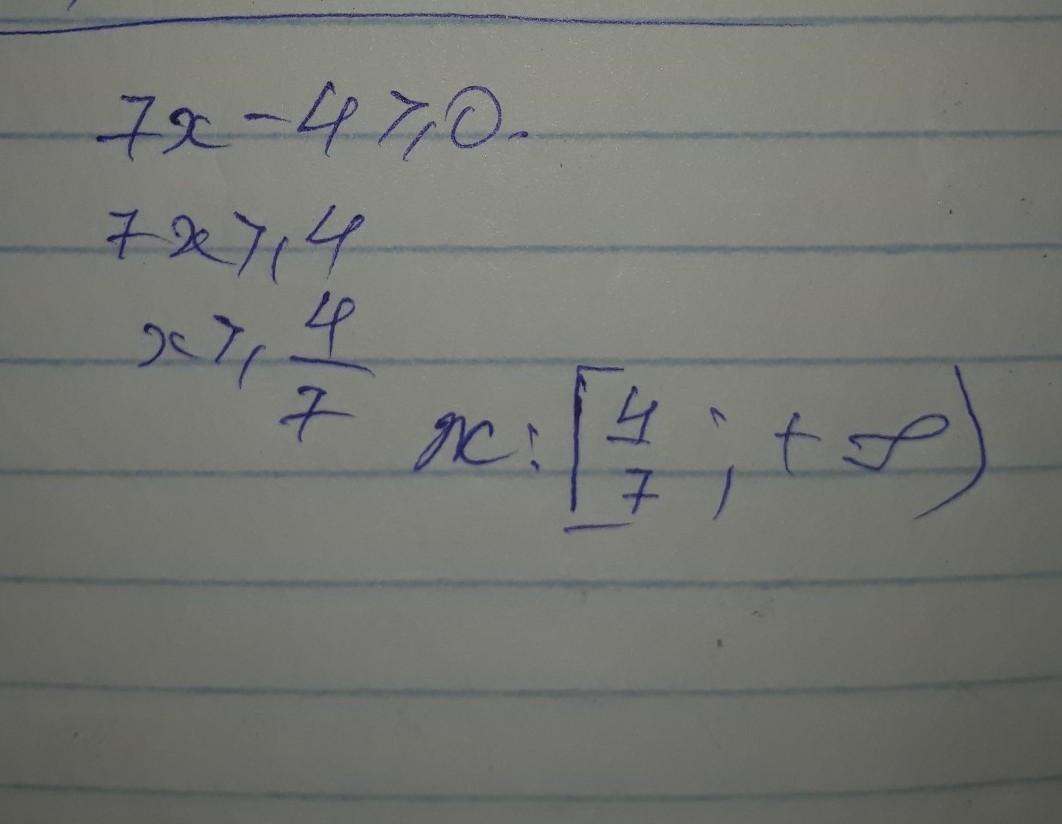 7x - 4 ⩾ 0.
7x ⩾ 4
x ⩾ 4/7
x: [4/7 ; + ∞)